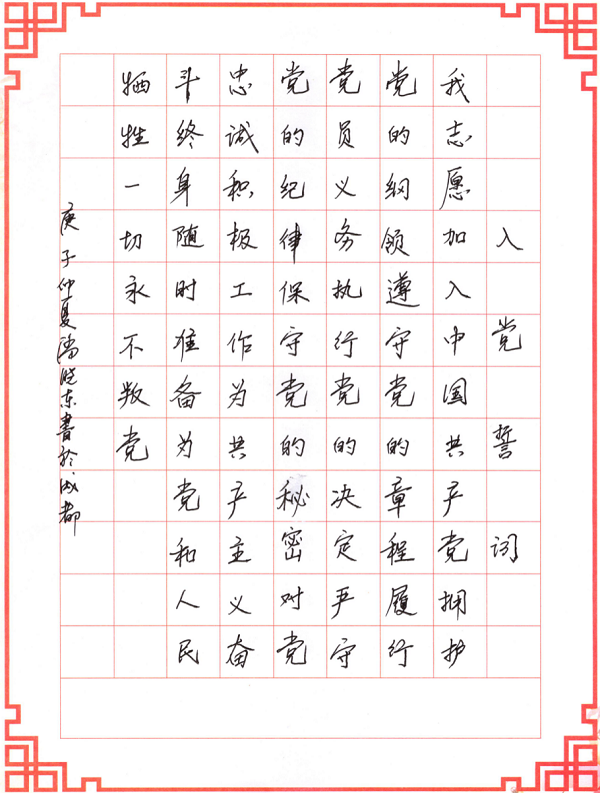 入党誓词
我志愿加入中国共产党拥护
党的纲领遵守党的章程履行
党员义务执行党的决定严守
党的纪律保守党的秘密对党
忠诚积极工作为共产主义奋
斗终身随时准备为党和人民
牺牲一切永不叛党
庚子仲夏潘晓东書於成都